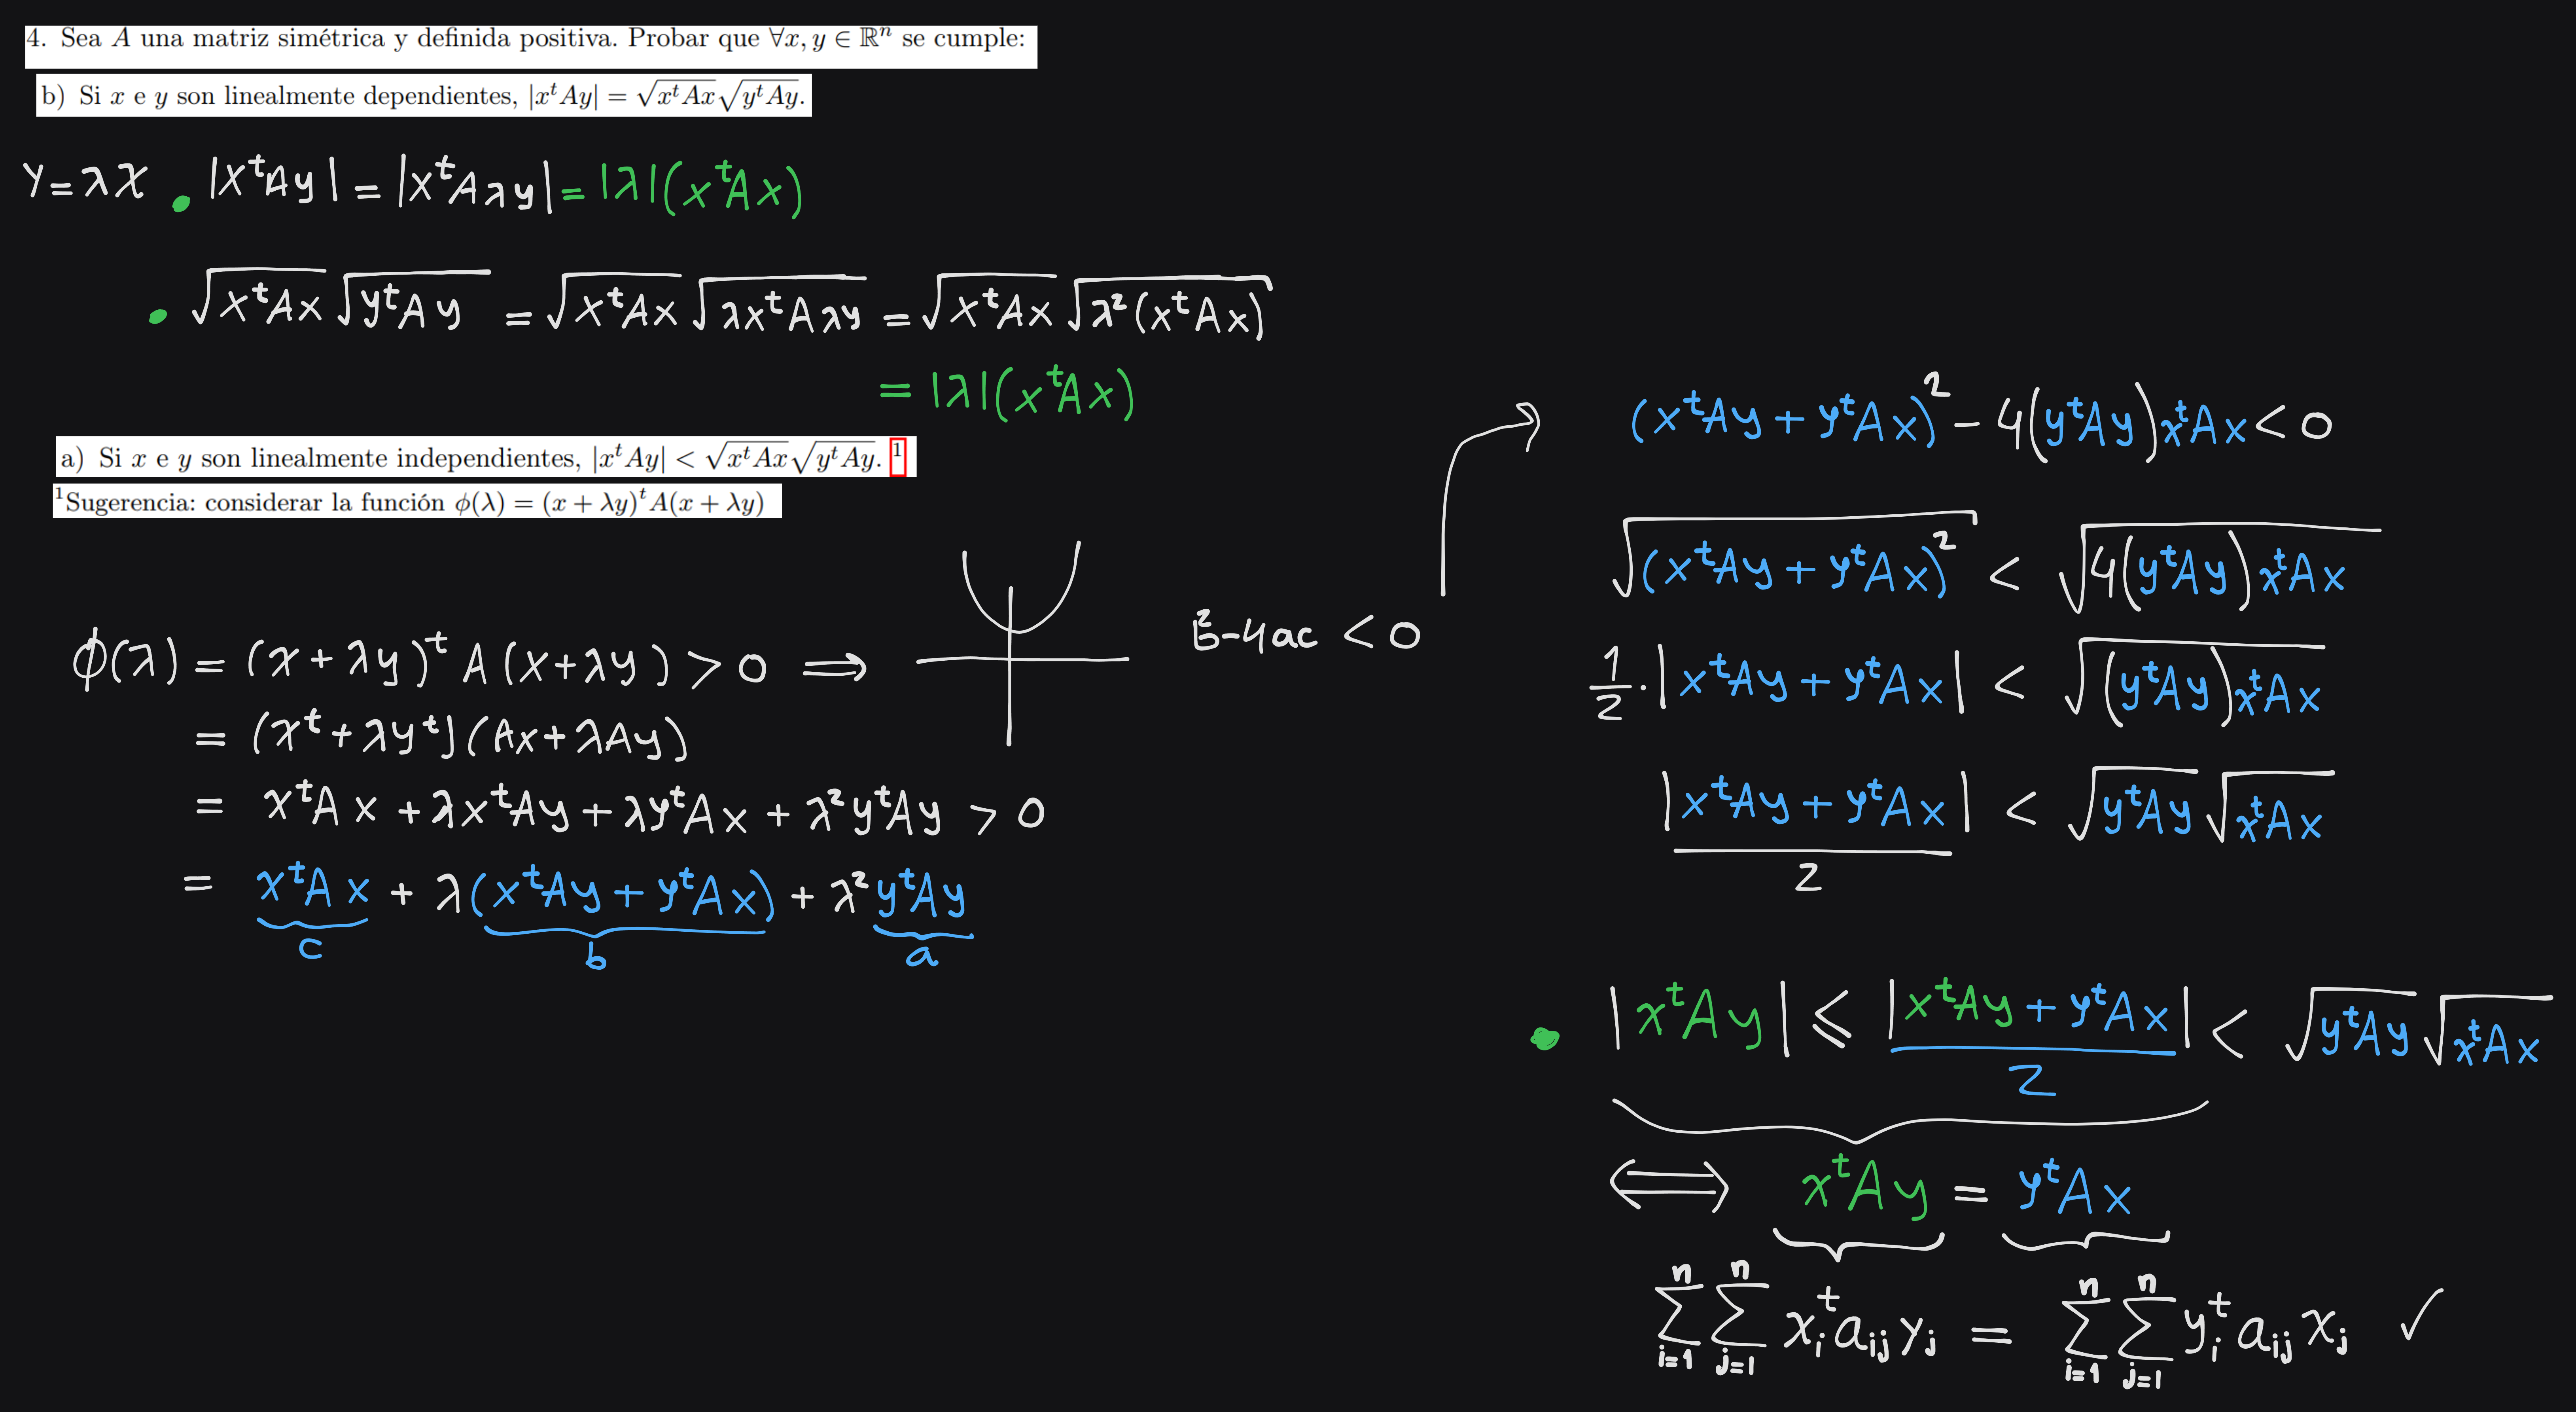 4. Sea A una matriz simétrica y definida positiva. Probar que ∀x, y ∈ ℝⁿ se cumple:
b) Si x e y son linealmente dependientes, |xᵗAy| = √(xᵗAx)√(yᵗAy).
y = λx • |xᵗAy| = |xᵗAλy| = |λ|(xᵗAx)
• √(xᵗAx) √(yᵗAy) = √(xᵗAx) √(λxᵗAλy) = √(xᵗAx) √(λ²(xᵗAx))
= |λ|(xᵗAx)
a) Si x e y son linealmente independientes, |xᵗAy| < √(xᵗAx)√(yᵗAy). ¹
¹Sugerencia: considerar la función ϕ(λ) = (x + λy)ᵗA(x + λy)
ϕ(λ) = (x + λy)ᵗ A (x + λy) > 0 ⟹
= (xᵗ + λyᵗ)(Ax + λAy)
= xᵗAx + λxᵗAy + λyᵗAx + λ²yᵗAy > 0
= xᵗAx + λ(xᵗAy + yᵗAx) + λ²yᵗAy
c b a
b²-4ac < 0
(xᵗAy + yᵗAx)² - 4(yᵗAy)xᵗAx < 0
√((xᵗAy + yᵗAx)²) < √(4(yᵗAy)xᵗAx)
1/2 · |xᵗAy + yᵗAx| < √((yᵗAy)xᵗAx)
|xᵗAy + yᵗAx| / 2 < √(yᵗAy) √(xᵗAx)
• |xᵗAy| ⩽ |xᵗAy + yᵗAx| / 2 < √(yᵗAy) √(xᵗAx)
⟺ xᵗAy = yᵗAx
∑ᵢ₌₁ⁿ ∑ⱼ₌₁ⁿ xᵢᵗ aᵢⱼ yⱼ = ∑ᵢ₌₁ⁿ ∑ⱼ₌₁ⁿ yᵢᵗ aᵢⱼ xⱼ ✓